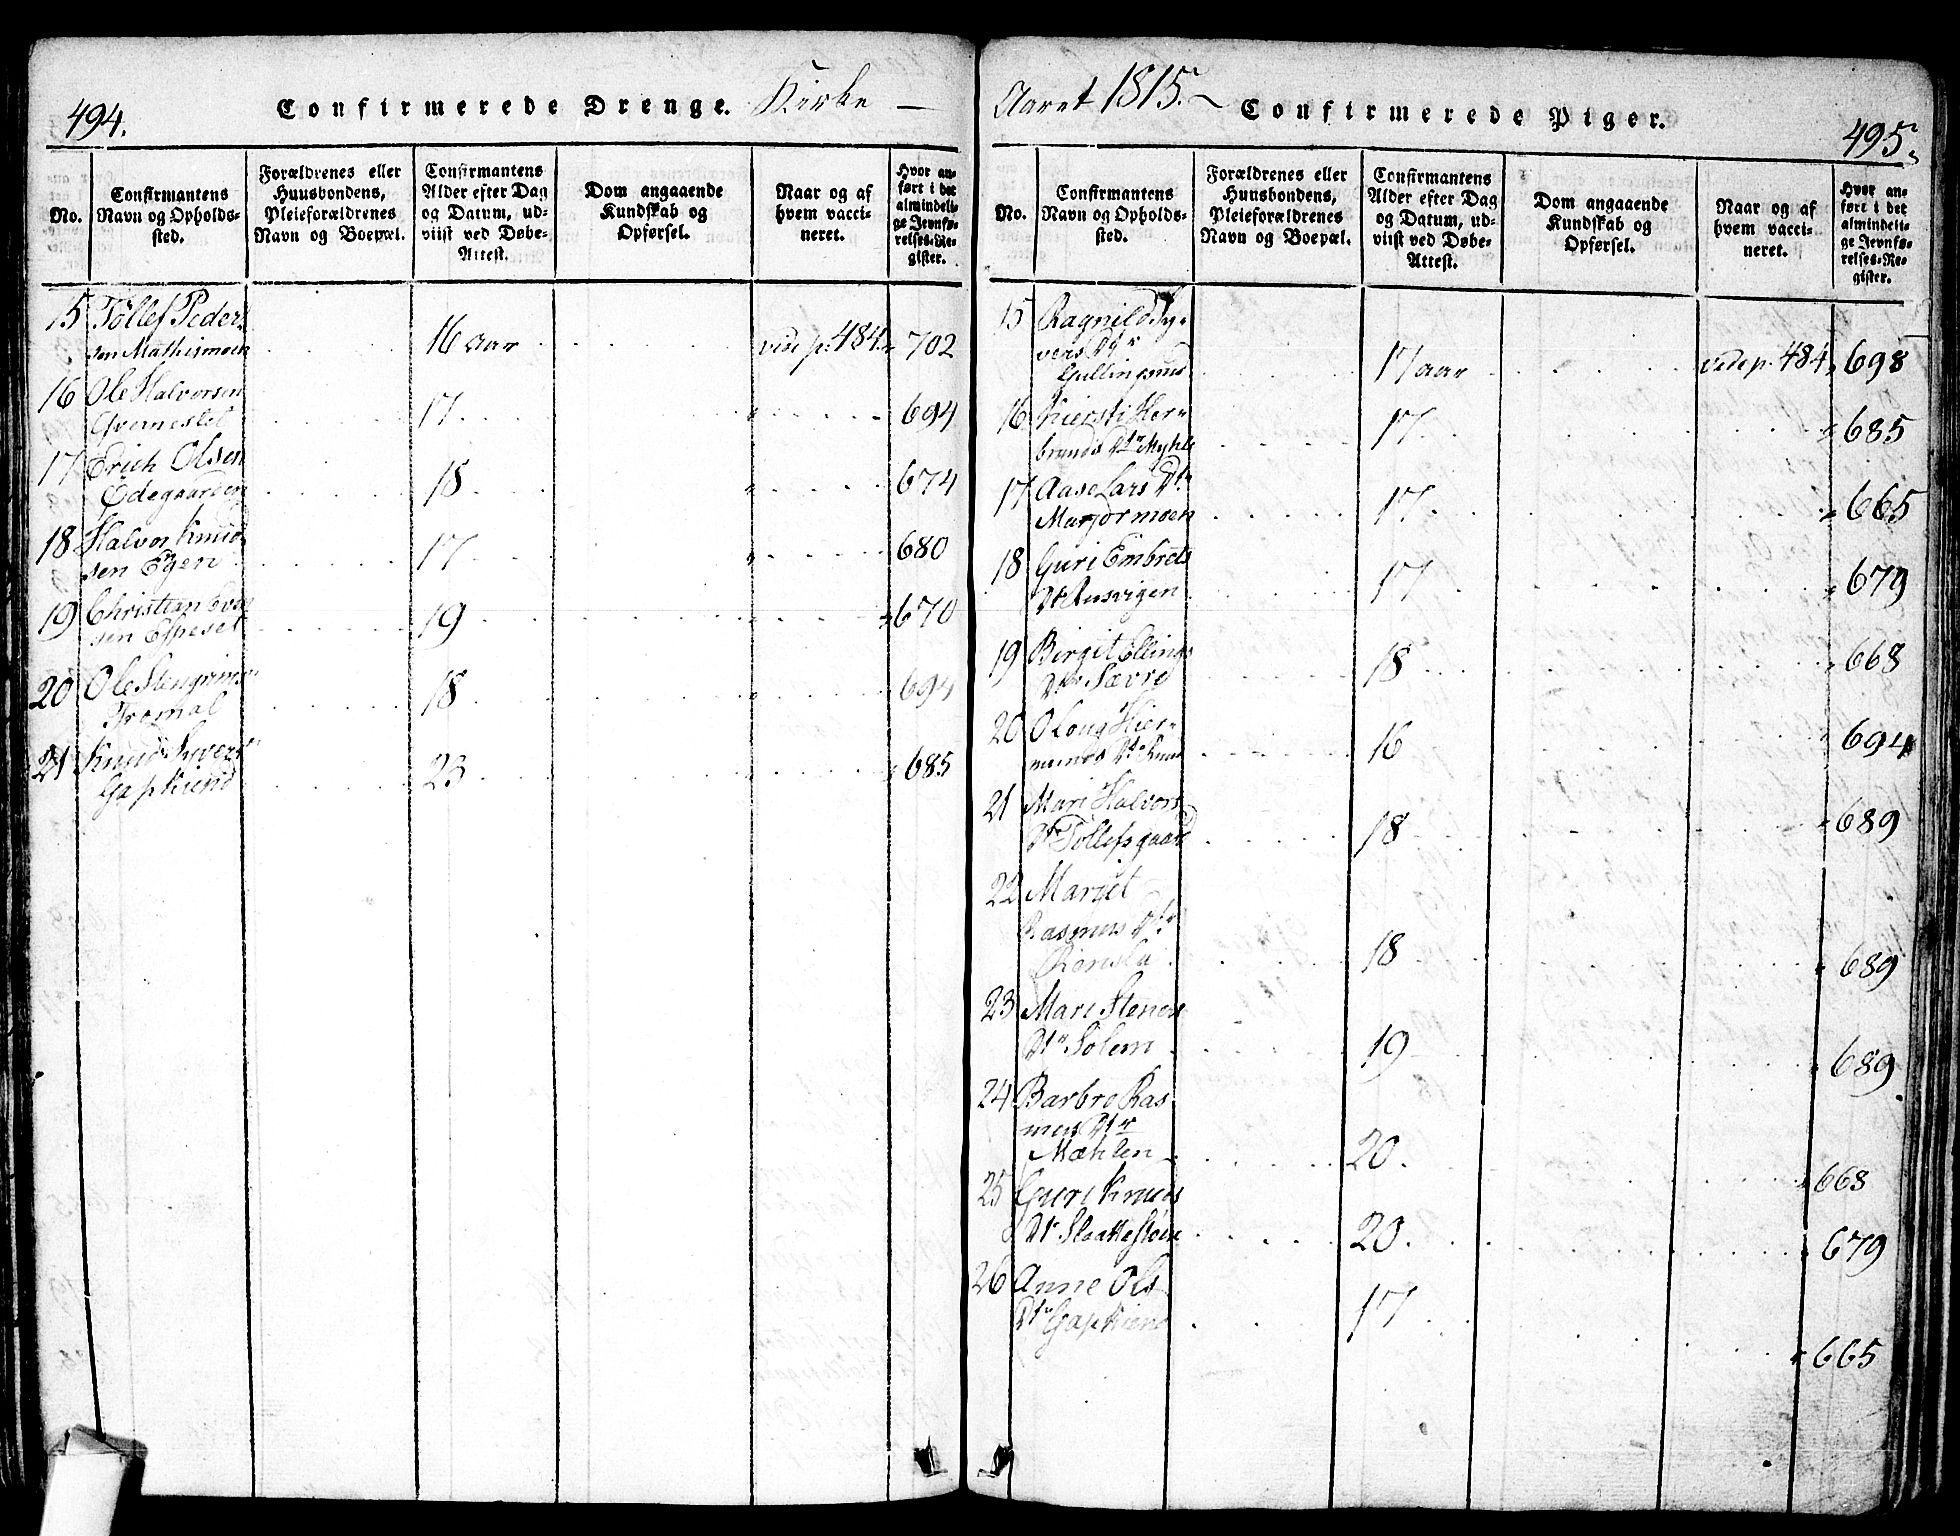 494.
Confirmerede Drenge. Kirke —
No.
Confirmantens
Navn og Opholds-
sted.
Forældrenes eller
Huusbondens,
Pleieforældrenes
Navn og Boepæl.
Confirmantens
Alder efter Dag
og Datum, ud-
viist ved Døbe-
Attest.
Dom angaaende
Kundskab og
Opførsel.
Naar og af
hvem vacci-
neret.
Hvor an-
ført i det
almindeli-
ge Jevnfø-
relses-Re-
gister.
15 Tollef Peder-
sen Mathismoen 16 aar vide p. 484. 702
16 Ole Halvorsen
17. " 694
17 Erich Olsen
Ødegaarden 18 " 674
18 Halvor Knud-
sen Egen 17. " 680
19 Christian
sen Espeset 19 " 670
20 Ole
Tromal 18 " 694
21 Knud
Gapkiend 23 " 685
Aaret 1815.
Confirmerede Piger.
495.
No.
Confirmantens
Navn og Opholds-
sted.
Forældrenes eller
Huusbondens,
Pleieforældrenes
Navn og Boepæl.
Confirmantens
Alder efter Dag
og Datum, ud-
viist ved Døbe-
Attest.
Dom angaaende
Kundskab og
Opførsel.
Naar og af
hvem vacci-
neret.
Hvor an-
ført i det
almindeli-
ge Jevnfø-
relses-Re-
gister.
15 Ragnild Sy-
vers Dtr
Gullingsrud 17 aar vide p. 484. 698
16 Kiersti Her-
brands Dtr Myhle 17. " 685
17 Aase Lars Dtr
moen 17. " 665
18 Guri Embrets
Dtr Rusvigen 17 " 679
19 Birgit Ellings
Dtr Sævre 18 " 668
20 Oloug Hier-
16 " 694
21 Mari Halvors
Dtr Tollefsgaard 18 " 689
22 Margit
Rasmus Dtr
18 " 689
23 Mari Stener
Dtr Solem 19 " 689
24 Barbro Ras
mus Dtr
Mæhlen 20. " 668
25 Guri Knuds
Dtr 20. " 679
26 Anne Ols
Dtr Gapkiend 17 " 665